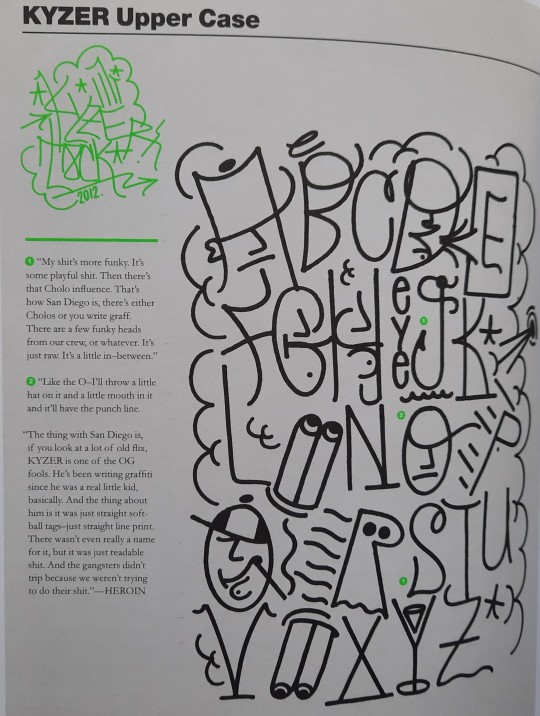 KYZER Upper Case
2012
1 “My shit’s more funky. It’s
some playful shit. Then there’s
that Cholo influence. That’s
how San Diego is, there’s either
Cholos or you write graff.
There are a few funky heads
from our crew, or whatever. It’s
just raw. It’s a little in–between.”
2 “Like the O–I’ll throw a little
hat on it and a little mouth in it
and it’ll have the punch line.
“The thing with San Diego is,
if you look at a lot of old flix,
KYZER is one of the OG
fools. He’s been writing graffiti
since he was a real little kid,
basically. And the thing about
him is it was just straight soft-
ball tags–just straight line print.
There wasn’t even really a name
for it, but it was just readable
shit. And the gangsters didn’t
trip because we weren’t trying
to do their shit.”—HEROIN
A B C D E
F G H I eye J K
L M N O P
Q R S T U
V W X Y Z